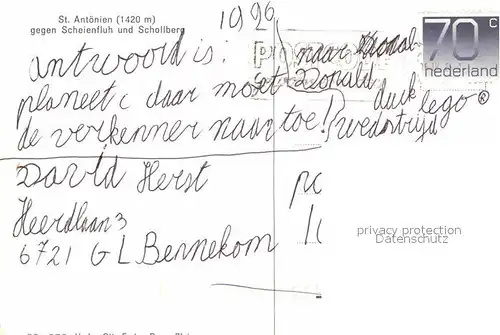 St. Antönien (1420 m)
gegen Scheienfluh und Schollberg
1996
70 c
nederland
antwoord is:
planeet c daar moet
de verkenner naartoe!
naar
Donald
duck
lego®
wedstrijd
David Herst
Heerdlaan 3
6721 GL Bennekom
privacy protection
Datenschutz